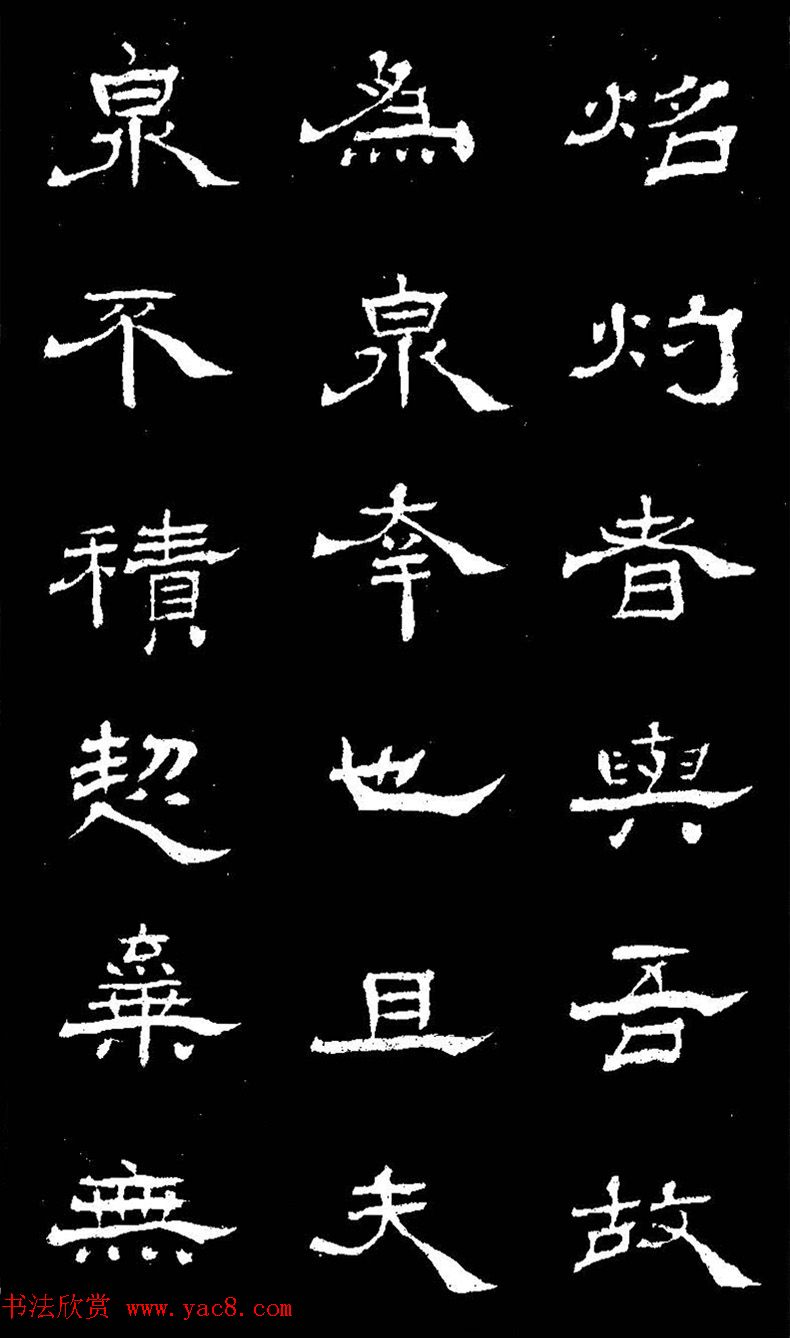 烙灼者與吾故
為泉幸也且夫
泉不積棄無
书法欣赏 www.yac8.com